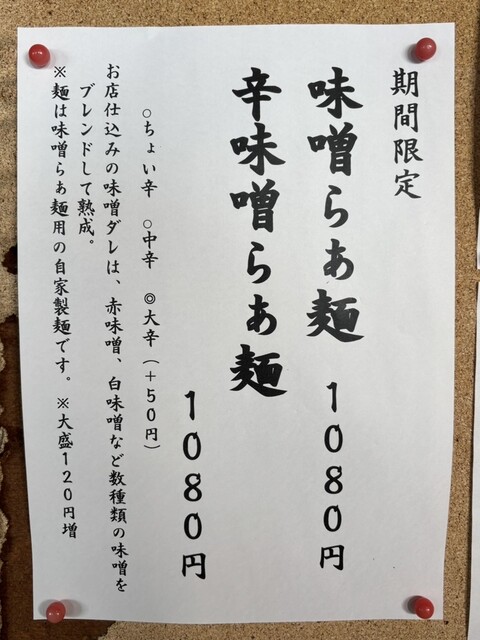 期間限定
味噌らぁ麺 1080円
辛味噌らぁ麺
1080円
○ちょい辛 ○中辛 ◎大辛(+50円)
お店仕込みの味噌ダレは、赤味噌、白味噌など数種類の味噌を
ブレンドして熟成。
※麺は味噌らぁ麺用の自家製麺です。 ※大盛120円増